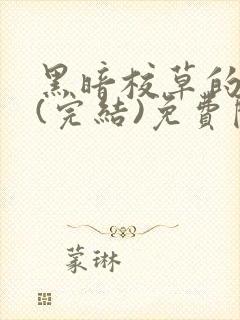 黑暗校草的
(完結)免費
蒙琳